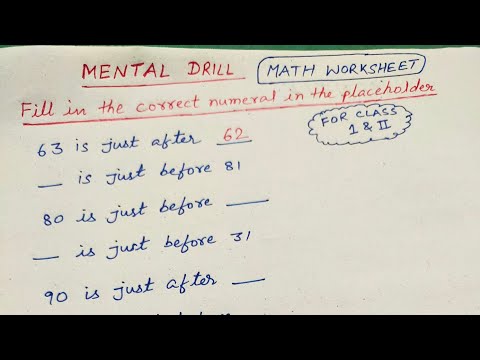 MENTAL DRILL MATH WORKSHEET
Fill in the correct numeral in the placeholder
FOR CLASS
I & II
63 is just after 62
__ is just before 81
80 is just before ___
__ is just before 31
90 is just after __